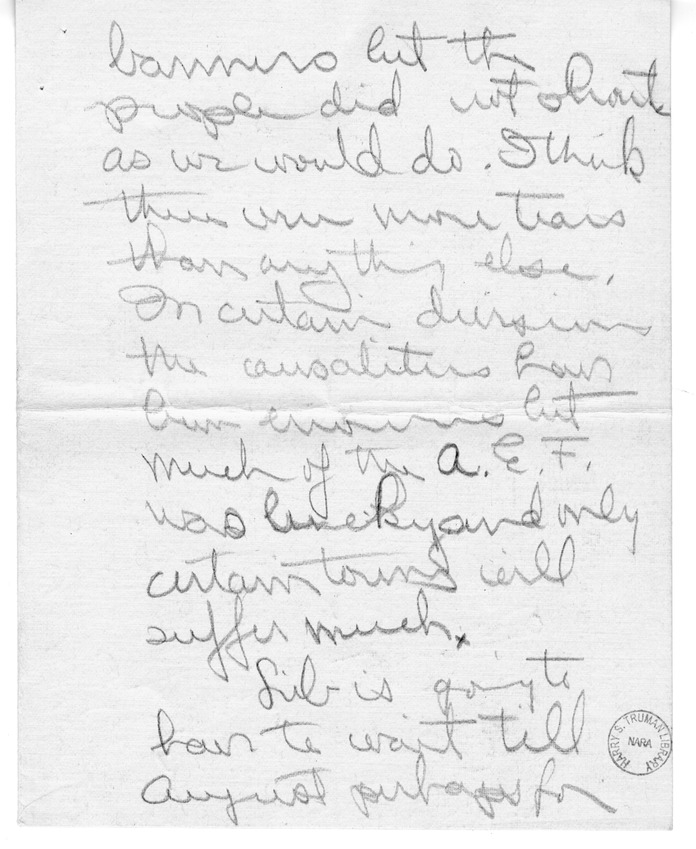 banners but the
people did not shout
as we would do. I think
there were more tears
than anything else.
In certain divisions
the causalities have
been enormous but
much of the A. E. F.
was lucky and only
certain towns will
suffer much.
is going to
have to wait till
August perhaps for
HARRY S. TRUMAN LIBRARY
NARA